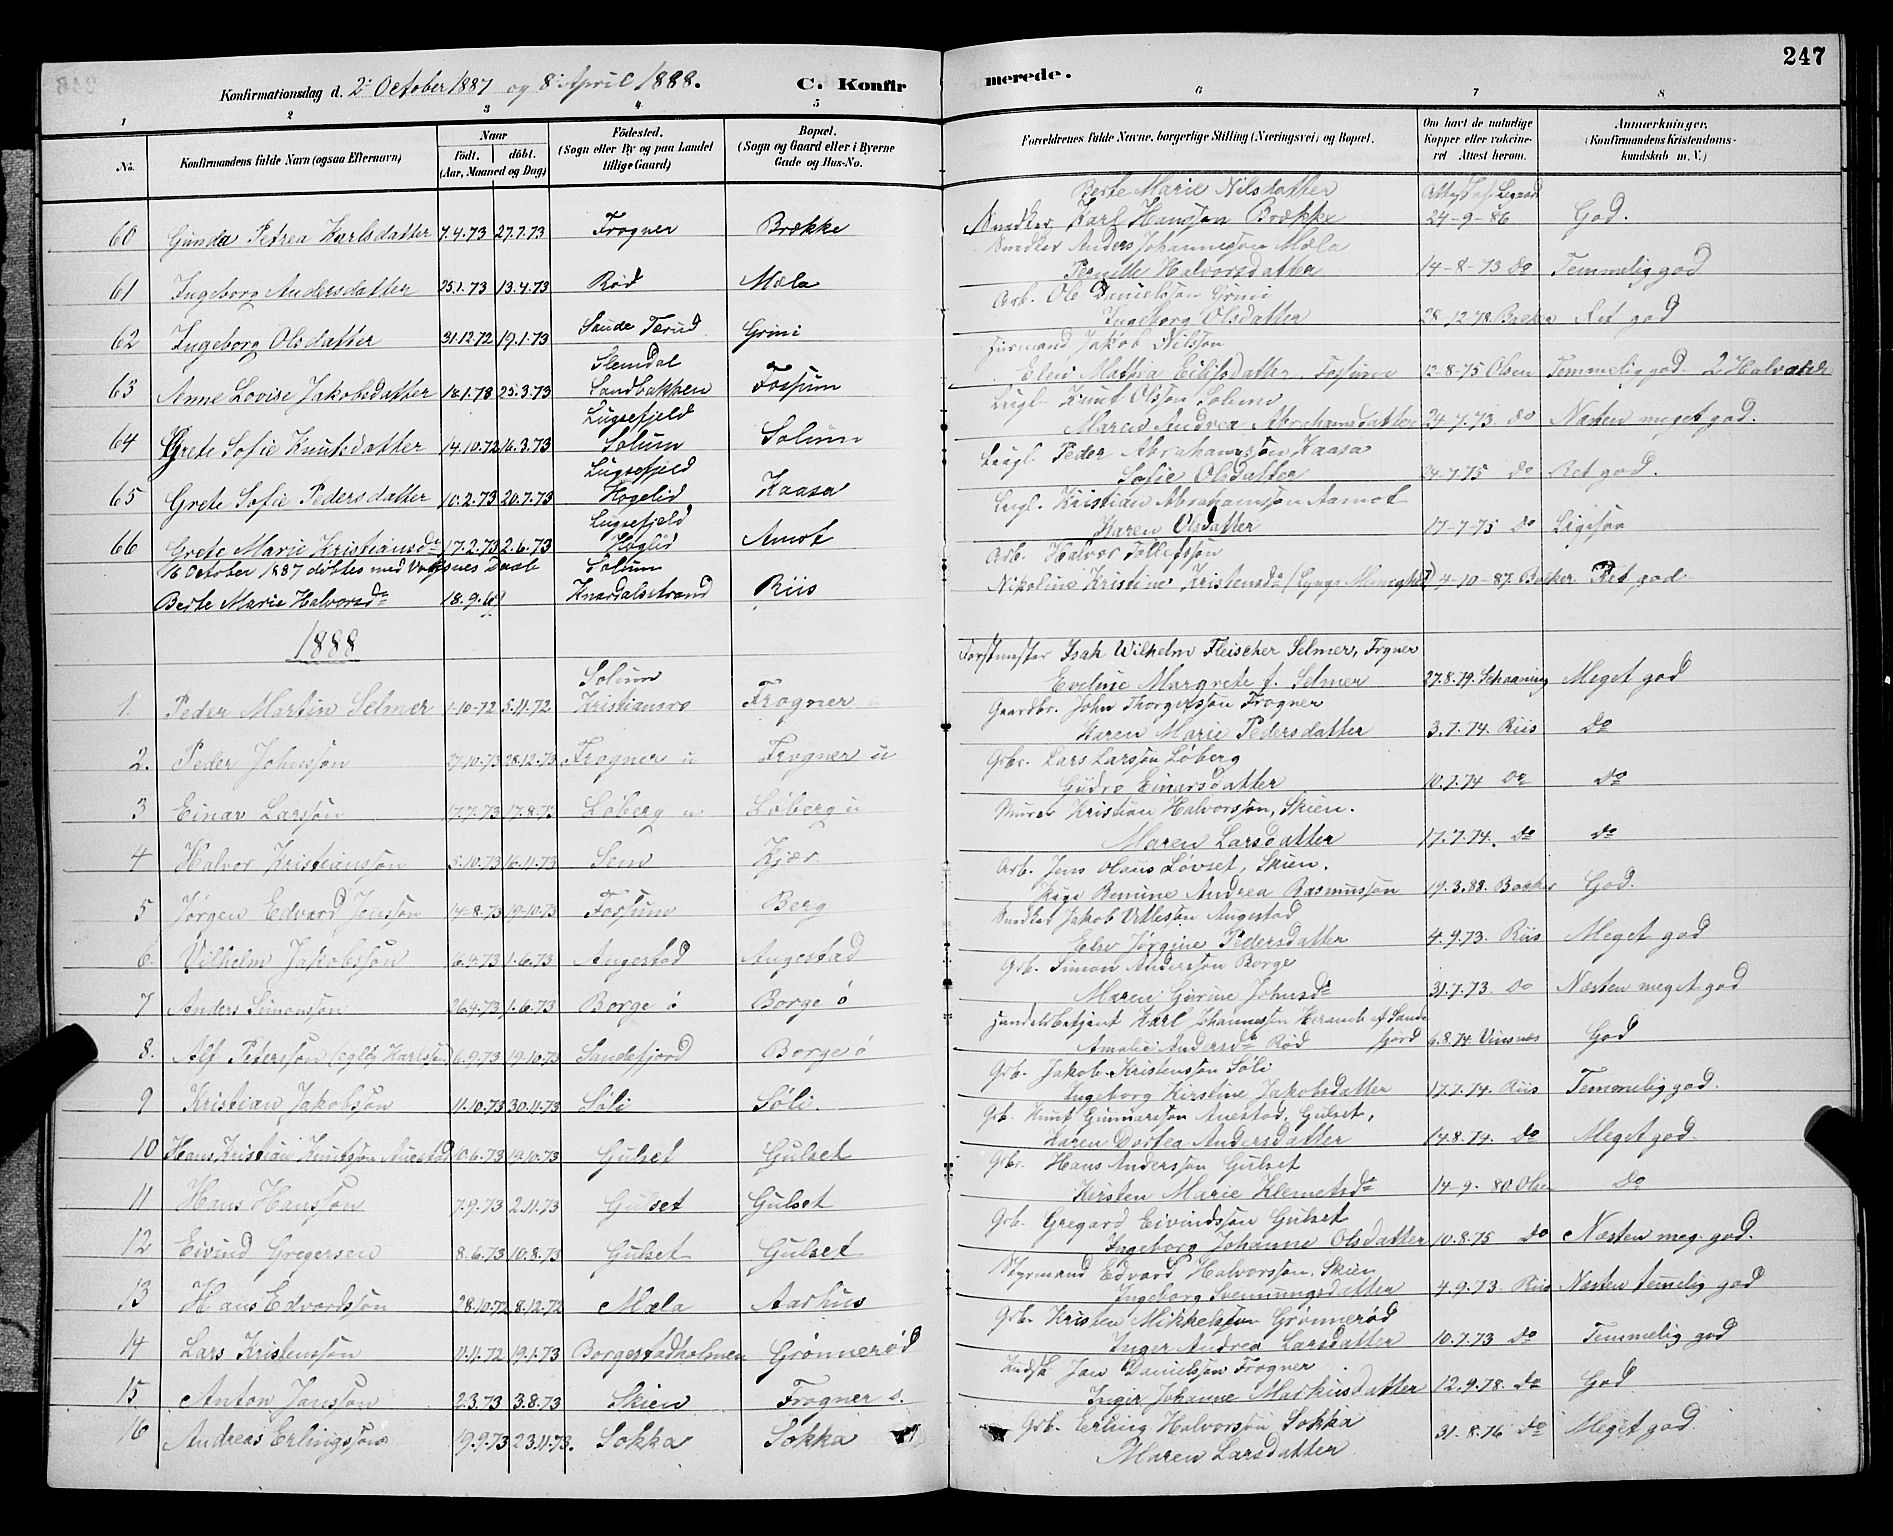 247
Konfirmationsdag d. 2. October 1887 og 8. April 1888. C. Konfirmerede.
1 2 3 4 5 6 7 8
No. Konfirmandens fulde Navn (ogsaa Efternavn) Naar født. døbt. (Aar, Maaned og Dag) Fødested. (Sogn eller By og paa Landet tillige Gaard) Bopæl. (Sogn og Gaard eller i Byerne Gade og Hus-No. Forældrenes fulde Navne, borgerlige Stilling (Næringsvei) og Bopæl. Om havt de naturlige Kopper eller vakcineret. Attest herom. Anmærkninger. (Konfirmandens Kristendomskundskab m. V.)
Berte Marie Nilsdatter
60 Gunda Petrea Karlsdatter 7.4.73 27.7.73 Frogner Brække Snedker Karl Hansson Brække 24-9-86 God.
Snedker Anders Johannesson Mæla
61 Ingeborg Andersdatter 25.1.73 13.4.73 Rød Mæla Halvorsdatter 14-8-73 do Temmelig god
Arb. Ole Danielsson Grini
62 Ingeborg Olsdatter 31.12.72 19.1.73 Saude Grini Ingeborg Olsdatter Ret god
Husmand Jakob Nilsson
Slemdal
63 Anne Lovise Jakobsdatter 25.3.73 Sandbakken Fossum Elen Mathea Fossum 12-8-75 Olsen Temmelig god.
Lugl. Knut Olsson Solum
Luksefjeld
64 Grete Sofie Knutsdatter 14.10.72 16.3.73 Solum Solum Maren Andrea Abrahamsdatter 24-7.73 do Næsten meget god.
Lugl. Peder Abrahamsson Kaasa
Luksefjeld
65 Grete Sofie Pedersdatter 10.2.73 20.7.73 Høgelid Kaasa Sofie Olsdatter 24-7-75 do Ret god.
Lugl. Kristian Abrahamsson Aamot
Luksefjeld
66 Grete Marie Kristiansd. 17.2.73 2.6.73 Høglid Amot Karen Olsdatter 17-7-75 do Ligesaa
Arb. Halvor Tollefsson
16 October 1887 døbtes med Voxnes Daab Solum
Berte Marie Halvorsd. Knardalsstrand Riis Nikoline Kristine Kristensd. 4-10-87 Backer Ret god.
1888
Forstmester Isak Wilhelm Fleischer Selmer, Frogner
Solum
1. Peder Martin Selmer 1-10-72 5.11.72 Kristiansro Frogner Eveline Margrete f. Selmer 27.8.79. Schaaning Meget god
Gaardbr. John Thorgersson Frogner
2. Peder Johnsson 27.10.73 28.12.73 Frogner u Frogner u Karen Marie Pedersdatter 3.7.74. Riis do
Grbr. Lars Larsson Løberg
3 Einar Larsson 17.7.73 17.8.73 Løberg u Løberg u Gudro Einarsdatter 10.7.74 do do
Murer Kristian Halvorsson, Skien.
4 Halvor Kristiansson 5.10.73 16.11.73 Sem Kjær Maren Larsdatter 17.7.74. do do
Arb. Jens Olaus Løvset, Skien.
5 Jørgen Edvard Jensson 14-8-73 19-10-73 Fossum Berg Andrea Rasmusson 19.3.88. Backer God.
Snedker Jakob Vetleson Augestad
6. Vilhelm Jakobsson 6.4.73 1.6.73 Augestad Augestad Elev Jørgine Pedersdatter 4.9.73. Riis Meget god
Grb. Simon Andersson Borge
7 Anders Simonsson 26.4.73 1.6.73 Borge ø Borge ø Maren Gurine Johnsd. 31.7.73. do Næsten meget god
Handelsbetjent Karl Johannessen Herama af Sandefjord
8. Alf Pettersson (eglt. Karlsson) 6.9.73 19.10.73 Sandefjord Borge ø Amalie Andersd. Rød 6.8.74. Vinsnes God
Grb. Jakob Kristensson Søli
9 Kristian Jakobson 11.10.73 30.11.73 Søli Søli. Ingeborg Kirstine Jakobsdatter 17.7.74. Riis Temmelig god.
Grb. Knut Gunnarsson Auestad, Gulset,
10 Hans Kristian Knutson Auestad 10.6.73 19.10.73 Gulset Gulset Karen Dortea Andersdatter 14.8.74. do Meget god.
Grb. Hans Andersson Gulset
11 Hans Hansson 7.9.73 2.11.73 Gulset Gulset Kirsten Marie Klemetsd. 14-9-80 Olsen do
Grb. Gregard Eivindsson Gulset
12 Eivind Gregersen 8.6.73 10.8.73 Gulset Gulset Ingeborg Johanne Olsdatter 10.8.75 do Næsten meg. god.
Styrmand Edvard Halvorsson, Skien
13 Hans Edvardsson 28.10.72 8.12.72 Mæla Aarhus Ingeborg Svenningsdatter 4.9.73. Riis Næsten temelig god
Grb. Kristen Mikkelsson Grønnerød
14 Lars Kristensson 11.11.72 19.1.73 Borgestadholmen Grønnerød Inger Andrea Larsdatter 10.7.73 do Temmelig god
Jan Danielsson Frogner
15 Anton Jansson 2.3.73 3.8.73 Skien Frogner s. Inger Johanne Markusdatter 12.9.78. do God
16 Andreas Erlingsson 19.9.73 23.11.73. Sokka Sokka Grb. Erling Halvorsson Sokka 31-8.76 do Meget god
Maren Larsdatter